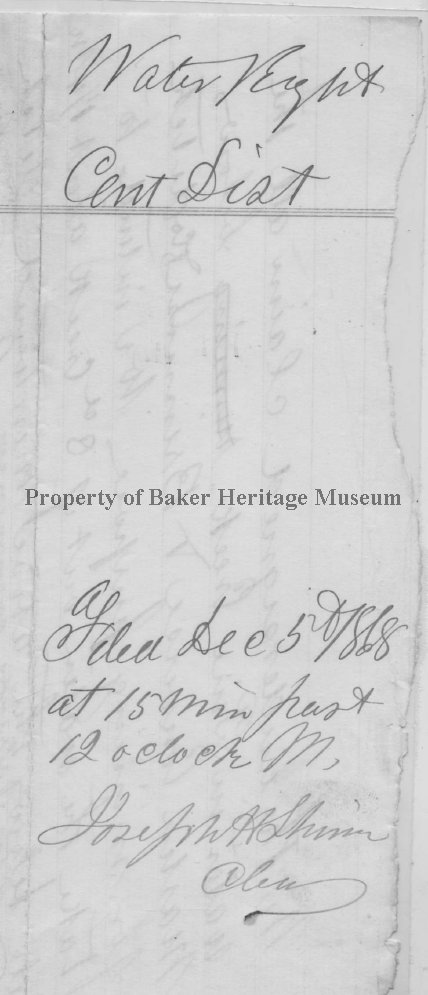 Water Right
Cent Dist
Property of Baker Heritage Museum
Filed Dec 5th 1868
at 15 min past
12 oclock M,
Joseph H Shinn
Clerk